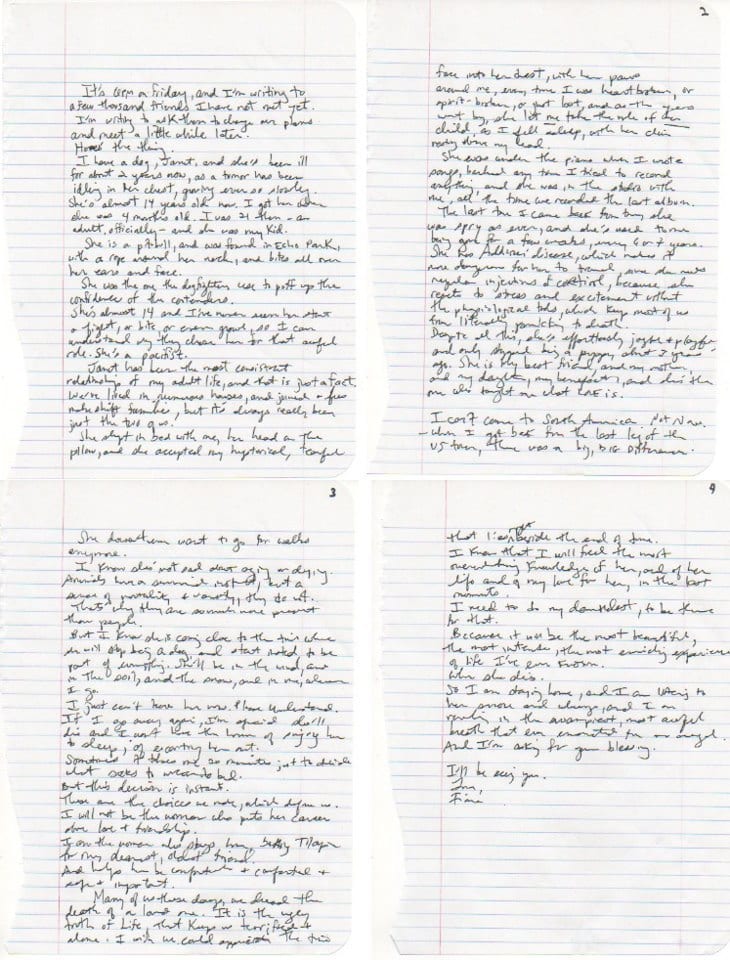 It's 6pm on Friday, and I'm writing to
a few thousand friends I have not met yet.
I'm writing to ask them to change our plans
and meet a little while later.
Here's the thing.
I have a dog, Janet, and she's been ill
for about 2 years now, as a tumor has been
idling in her chest, growing ever so slowly.
She's almost 14 years old now. I got her when
she was 4 months old. I was 21 then - an
adult, officially - and she was my kid.
She is a pitbull, and was found in Echo Park,
with a rope around her neck, and bites all over
her ears and face.
She was the one the dogfighters use to puff up the
confidence of the contenders.
She's almost 14 and I've never seen her start
a fight, or bite, or even growl, so I can
understand why they chose her for that awful
role. She's a pacifist.
Janet has been the most consistent
relationship of my adult life, and that is just a fact.
We've lived in numerous houses, and joined a few
makeshift families, but it's always really been
just the two of us.
She slept in bed with me, her head on the
pillow, and she accepted my hysterical, tearful
2
face into her chest, with her paws
around me, every time I was heartbroken, or
spirit-broken, or just lost, and as the years
went by, she let me take the role of her
child, as I fell asleep, with her chin
resting above my head.
She was under the piano when I wrote
songs, barked any time I tried to record
anything, and she was in the studio with
me, all the time we recorded the last album.
The last time I came back from tour, she
was spry as ever, and she's used to me
being gone for a few weeks, every 6 or 7 years.
She has Addison's disease, which makes it
more dangerous for her to travel, since she needs
regular injections of cortisol, because she
reacts to stress and excitement without
the physiological tools which keep most of us
from literally panicking to death.
Despite all this, she's effortlessly joyful & playful,
and only stopped being a puppy about 3 years
ago. She is my best friend, and my mother,
and my daughter, my benefactor, and she's the
one who taught me what love is.
I can't come to South America. Not Now.
When I got back from the last leg of the
US tour, there was a big, BIG Difference.
3
She doesn't even want to go for walks
anymore.
I know she's not sad about aging or dying.
Animals have a survival instinct, but a
sense of mortality & vanity, they do not.
That's why they are so much more present
than people.
But I know she is coming close to the time where
she will stop being a dog, and start instead to be
part of everything. She'll be in the wind, and
in the soil, and the snow, and in me, wherever
I go.
I just can't leave her now. Please Understand.
If I go away again, I'm afraid she'll
die and I won't have the honor of singing her
to sleep, of escorting her out.
Sometimes it takes me 20 minutes just to decide
what socks to wear to bed.
But this decision is instant.
These are the choices we make, which define us.
I will not be the woman who puts her career
above love & friendship.
I am the woman who stays home, baking Tilapia
for my dearest, oldest friend.
And helps her be comfortable & comforted &
safe & important.
Many of us these days, we dread the
death of a loved one. It is the ugly
truth of Life, that keeps us terrified &
alone. I wish we could appreciate the time
4
that lies right beside the end of time.
I know that I will feel the most
overwhelming knowledge of her, and of her
life and of my love for her, in the last
moments.
I need to do my damnedest, to be there
for that.
Because it will be the most beautiful,
the most intense, the most enriching experience
of life I've ever known.
When she dies.
So I am staying home, and I am listening to
her snore and wheeze, and I am
reveling in the swampiest, most awful
breath that ever emanated from an angel.
And I'm asking for your blessing.
I'll be seeing you.
Love,
Fiona